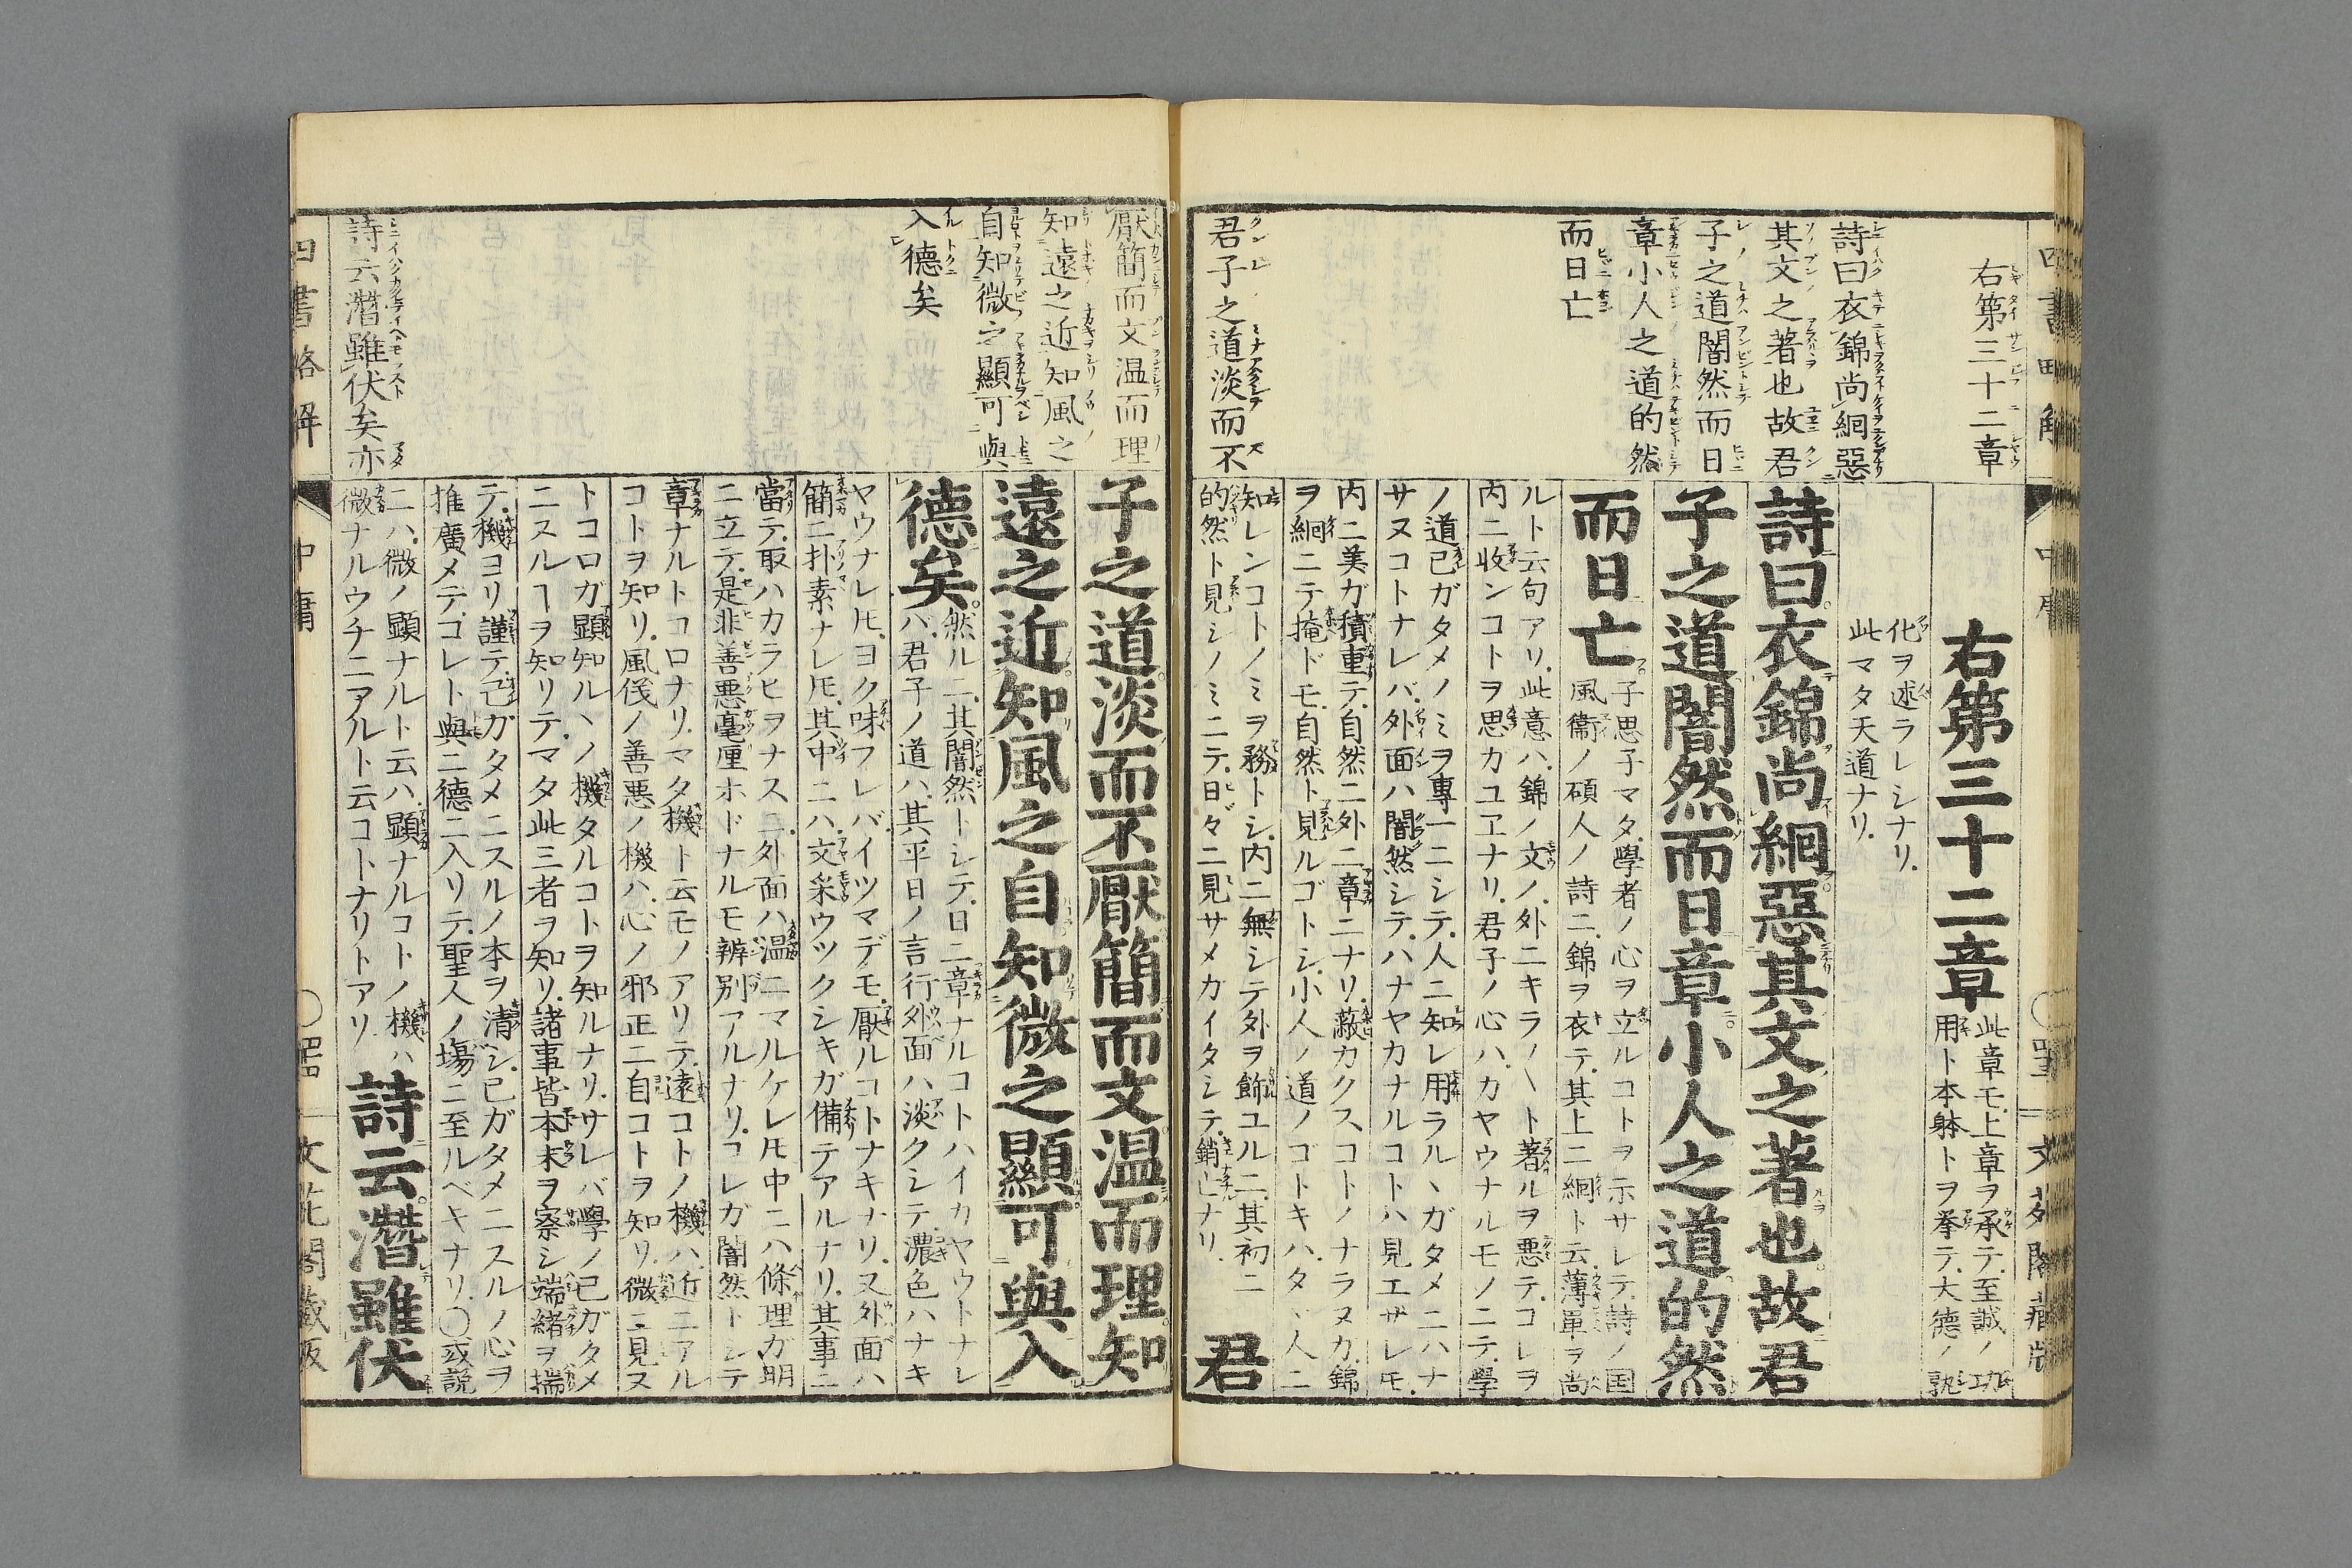 四書略解
中庸
文苑閣藏版
右第三十二章
詩曰衣錦尚絅惡
其文之著也故君
子之道闇然而日
章小人之道的然
而日亡
君子之道淡而不
右第三十二章
此章モ上章ヲ承テ至誠ノ功
用ト本躰トヲ挙テ大德ノ孰
化ヲ述ラレシナリ
此マタ天道ナリ
詩曰衣錦尚絅惡其文之著也故君
子之道闇然而日章小人之道的然
而日亡
子思子マタ學者ノ心ヲ立ルコトヲ示サレテ詩ノ国
風衞ノ碩人ノ詩ニ錦ヲ衣テ其上ニ絅ト云薄單ヲ尚
ルト云句アリ此意ハ錦ノ文ノ外ニキラ〳〵ト著ルヲ悪テコレヲ
内ニ收ンコトヲ思カユヱナリ君子ノ心ハカヤウナルモノニテ學
ノ道已ガタメノミヲ專一ニシテ人ニ知レ用ラルヽガタメニハナ
サヌコトナレバ外面ハ闇然シテハナヤカナルコトハ見エザレ𪜈
内ニ美ガ積重テ自然ニ外ニ章ニナリ蔽カクスコトノナラヌカ錦
ヲ絅ニテ掩ドモ自然ト見ルゴトシ小人ノ道ノゴトキハタヽ人ニ
知レンコトノミヲ務トシ内ニ無シテ外ヲ飾ユルニ其初ニ
的然ト見シノミニテ日々ニ見サメカイタシテ銷亡ナリ
君
厭簡而文温而理
知遠之近知風之
自知微之顯可與
入德矣
詩云潛雖伏矣亦
子之道淡而不厭簡而文温而理知
遠之近知風之自知微之顯可與入
德矣
然ルニ其闇然トシテ日ニ章ナルコトハイカヤウトナレ
バ君子ノ道ハ其平日ノ言行外面ハ淡クシテ濃色ハナキ
ヤウナレ𪜈ヨク味フレバイツマデモ厭ルコトナキナリ又外面ハ
簡ニ扑素ナレ𪜈其中ニハ文采ウツクシキガ備テアルナリ其事ニ
當テ取ハカラヒヲナスニ外面ハ温ニマルケレ𪜈中ニハ條理ガ明
ニ立テ是非善悪毫厘ホドナルモ辨別アルナリコレガ闇然トシテ
章ナルトコロナリマタ機ト云モノアリテ遠コトノ機ハ近ニアル
コトヲ知リ風俗ノ善悪ノ機ハ心ノ邪正ニ自コトヲ知リ微ニ見ヌ
トコロガ顯知ルヽノ機タルコトヲ知ルナリサレバ學ノ已ガタメ
ニスルヿヲ知リテマタ此三者ヲ知リ諸事皆本末ヲ察シ端緒ヲ揣
テ機ヨリ謹テ己ガタメニスルノ本ヲ清シ已ガタメニスルノ心ヲ
推廣メテコレト與ニ德ニ入リテ聖人ノ塲ニ至ルベキナリ〇或説
ニハ微ノ顯ナルト云ハ顯ナルコトノ機ハ
微ナルウチニアルト云コトナリトアリ
詩云潛雖伏
四書略解
中庸
文苑閣藏版